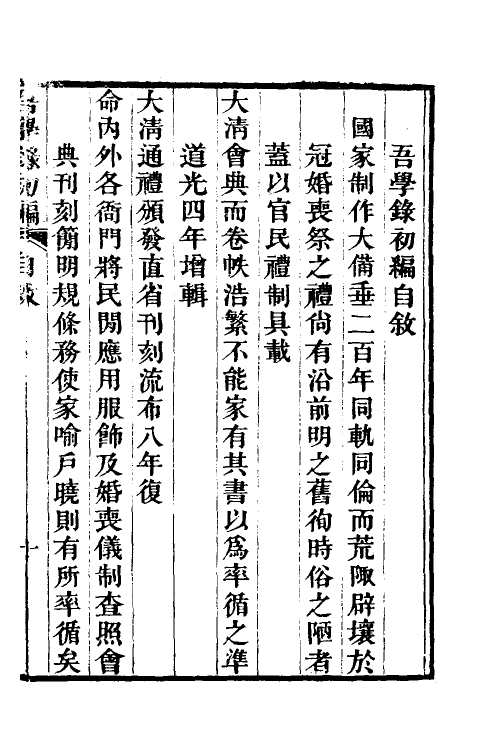 吾學錄初編自敘
國家制作大備垂二百年同軌同倫而荒陬辟壤於
冠婚喪祭之禮尙有沿前明之舊徇時俗之陋者
蓋以官民禮制具載
大淸會典而卷帙浩繁不能家有其書以爲率循之準
道光四年增輯
大淸通禮頒發直省刊刻流布八年復
命內外各衙門將民閒應用服飾及婚喪儀制查照會
典刊刻簡明規條務使家喻戶曉則有所率循矣
吾學錄初編 自敘 一